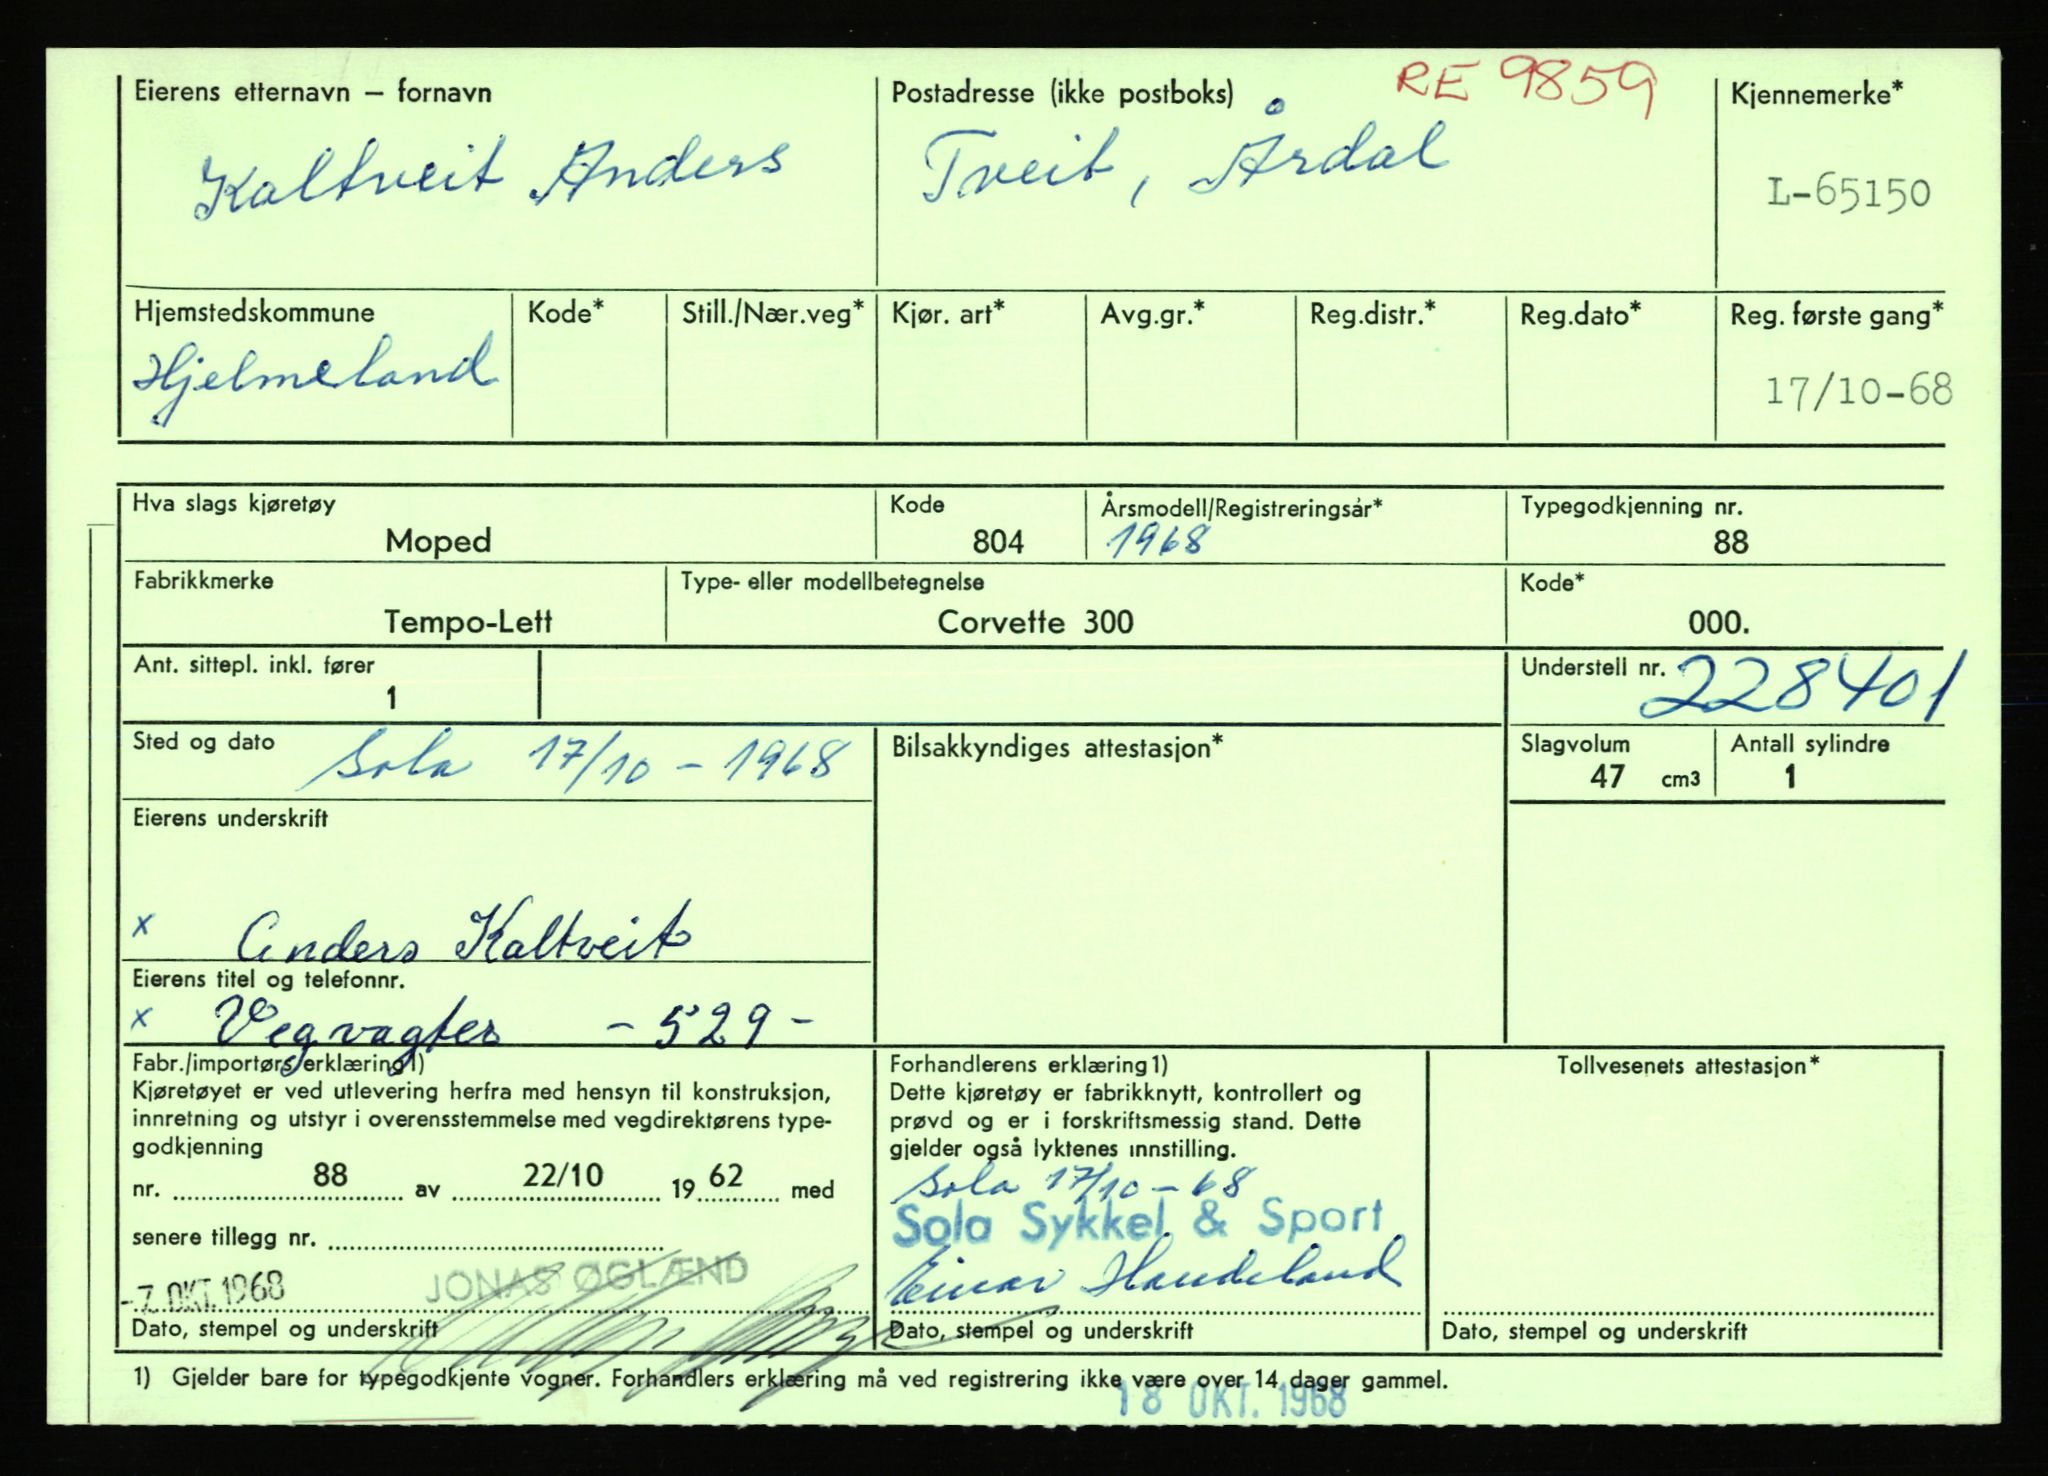 RE 9859
Eierens etternavn – fornavn
Kaltveit Anders
Postadresse (ikke postboks)
Tveit, Årdal
Kjennemerke*
L-65150
Hjemstedskommune
Hjelmeland
Kode*
Still./Nær.veg*
Kjør. art*
Avg.gr.*
Reg.distr.*
Reg.dato*
Reg. første gang*
17/10-68
Hva slags kjøretøy
Moped
Kode
804
Årsmodell/Registreringsår*
1968
Typegodkjenning nr.
88
Fabrikkmerke
Tempo-Lett
Type- eller modellbetegnelse
Corvette 300
Kode*
000.
Ant. sittepl. inkl. fører
1
Understell nr.
228401
Sted og dato
Sola 17/10 - 1968
Bilsakkyndiges attestasjon*
Slagvolum
47 cm3
Antall sylindre
1
Eierens underskrift
x Anders Kaltveit
Eierens titel og telefonnr.
x Vegvagter - 529 -
Fabr./importørs erklæring1)
Kjøretøyet er ved utlevering herfra med hensyn til konstruksjon,
innretning og utstyr i overensstemmelse med vegdirektørens type-
godkjenning
nr. 88 av 22/10 19 62 med
senere tillegg nr.
-7. OKT. 1968
JONAS ØGLÆND
Dato, stempel og underskrift
Forhandlerens erklæring1)
Dette kjøretøy er fabrikknytt, kontrollert og
prøvd og er i forskriftsmessig stand. Dette
gjelder også lyktenes innstilling.
Sola 17/10 - 68
Sola Sykkel & Sport
Einar Haudeland
Dato, stempel og underskrift
Tollvesenets attestasjon*
Dato, stempel og underskrift
1) Gjelder bare for typegodkjente vogner. Forhandlers erklæring må ved registrering ikke være over 14 dager gammel.
18 OKT. 1968